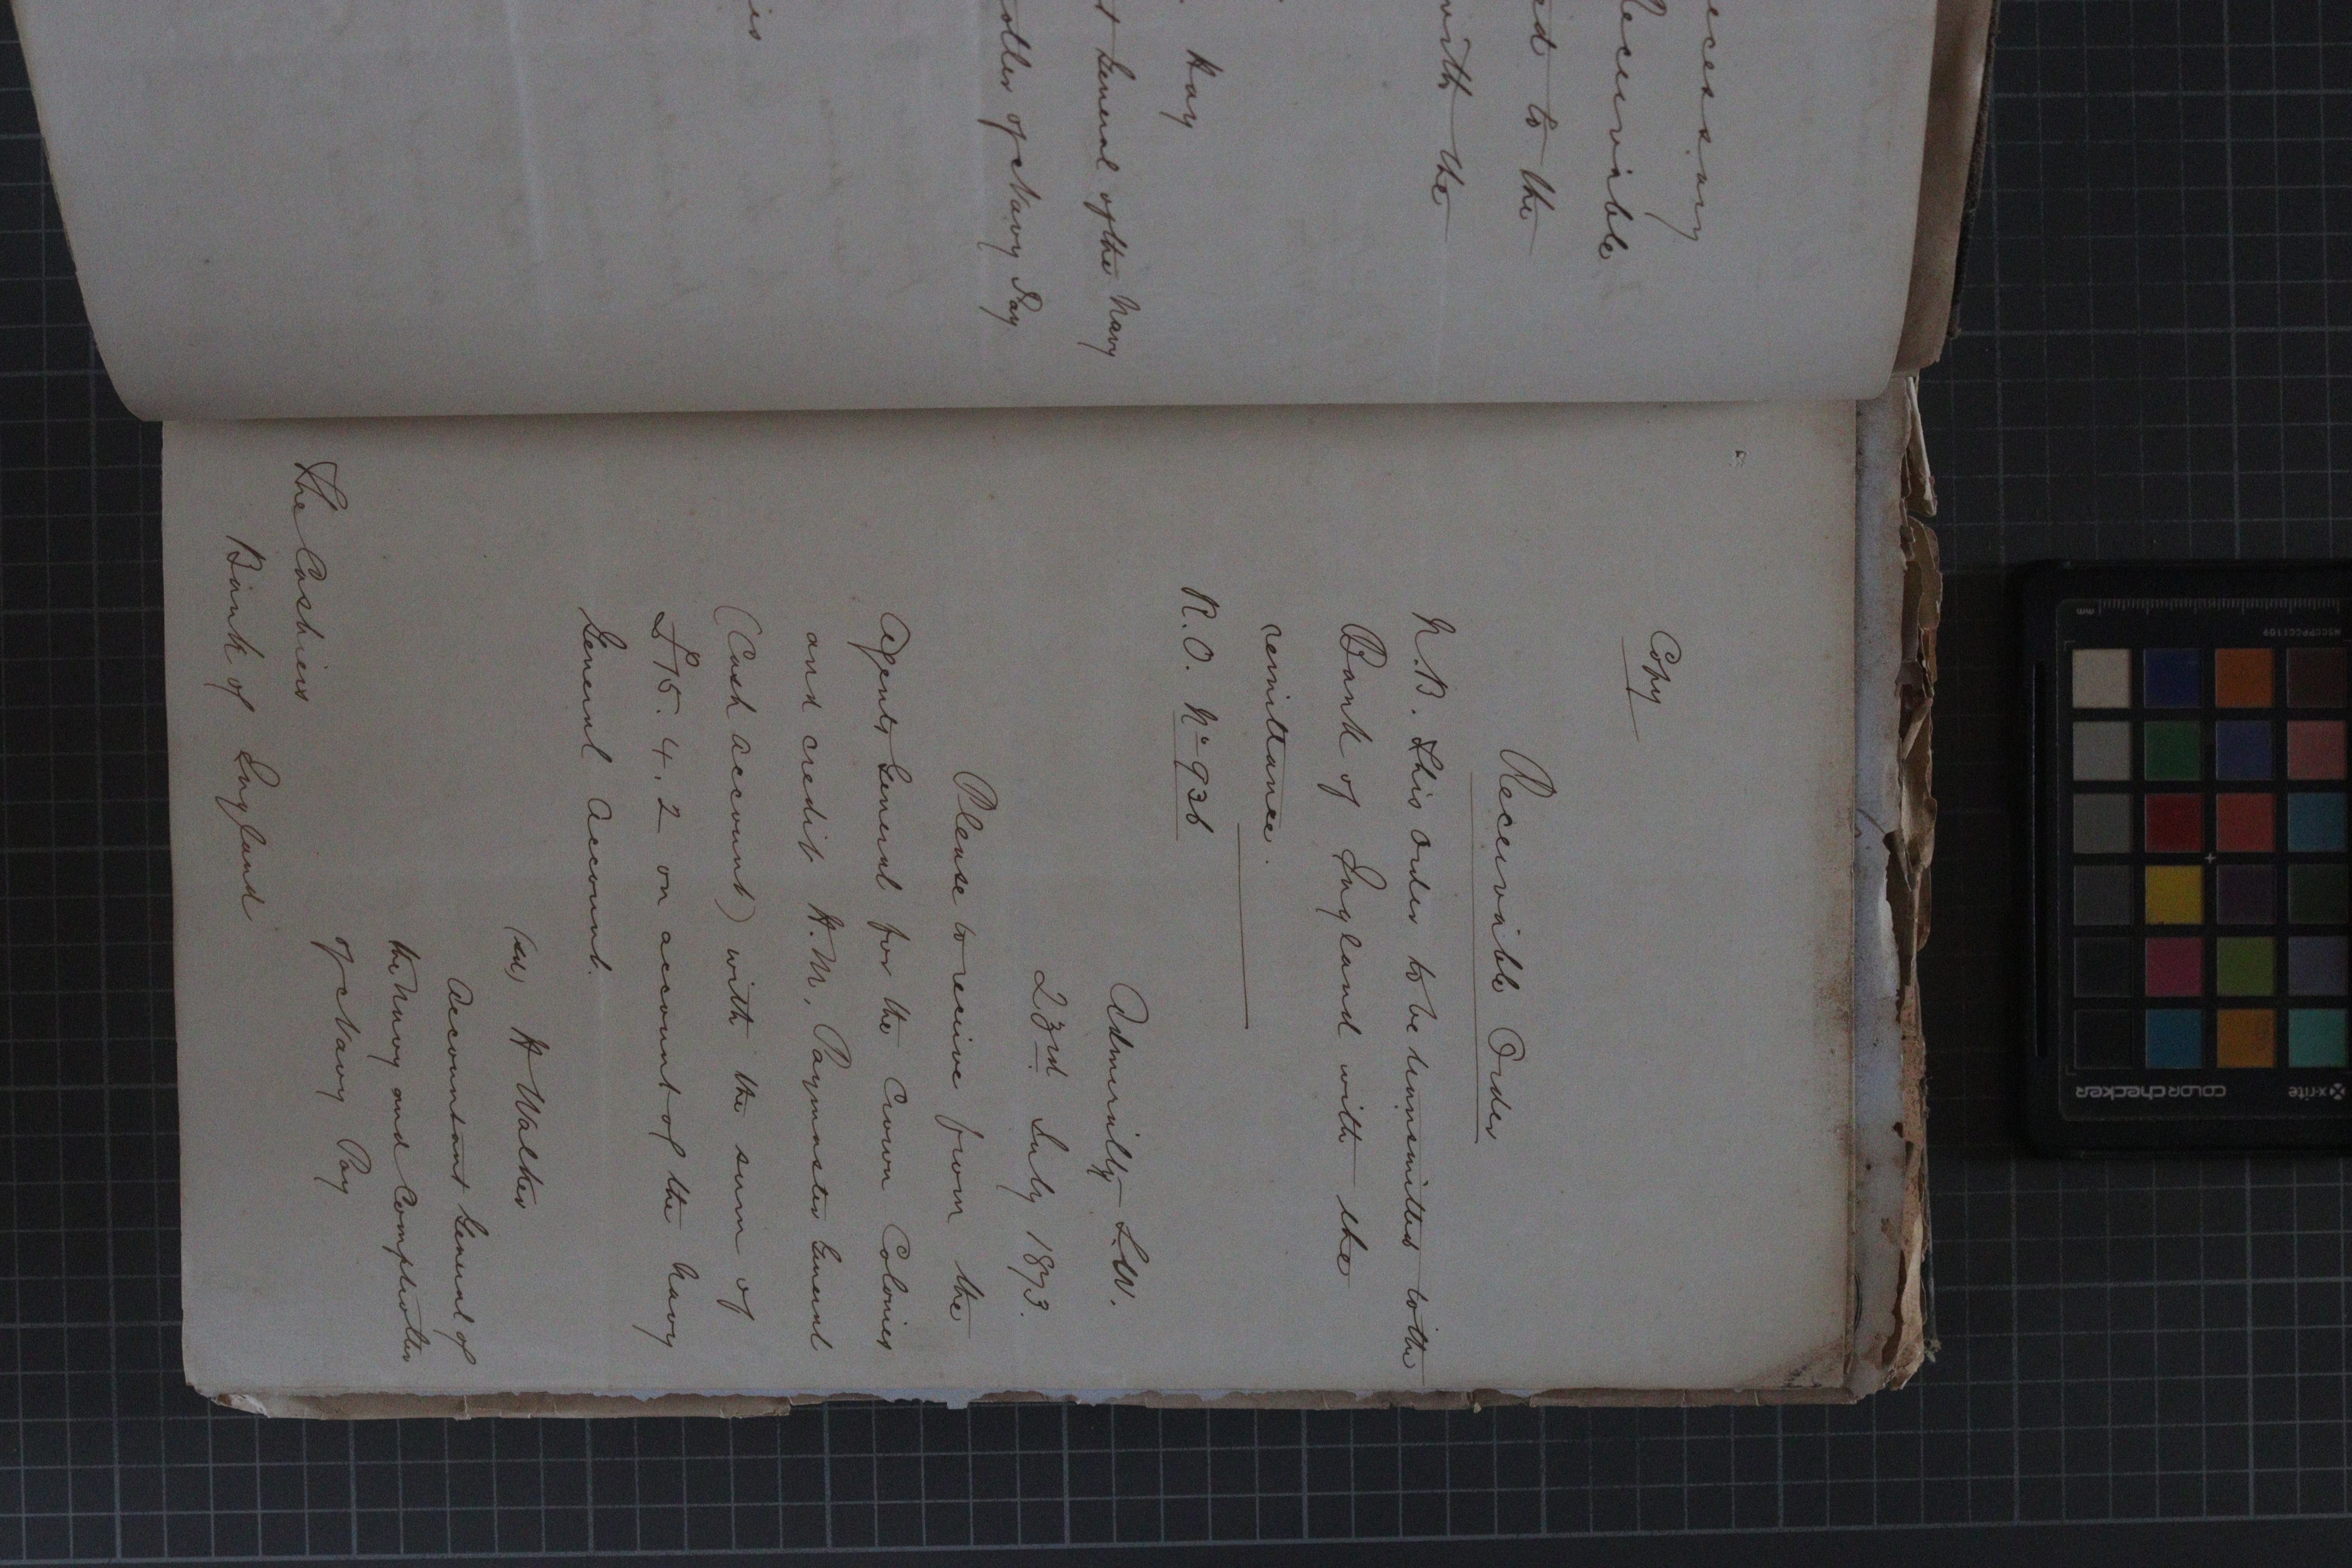 ecessary
Receivible
ed to the
with the
Hay
t General of the Navy
otler of Navy Pay
is
Copy
Receivible Order
N.B. This order to be transmitted to the
Bank of England with the
remittance.
R.O. No 936
Admiralty S.W.
23rd July 1873.
Please to receive from the
Agents General for the Crown Colonies
and credit H.M. Paymaster General
(Cash account) with the sum of
£15.4.2 on account of the Navy
General Account.
(sd) H Walter
Accountant General of
the Navy and Comptroller
of Navy Pay
The Cashiers
Bank of England
x-rite
colorchecker
MSCCPPCC1109
mm